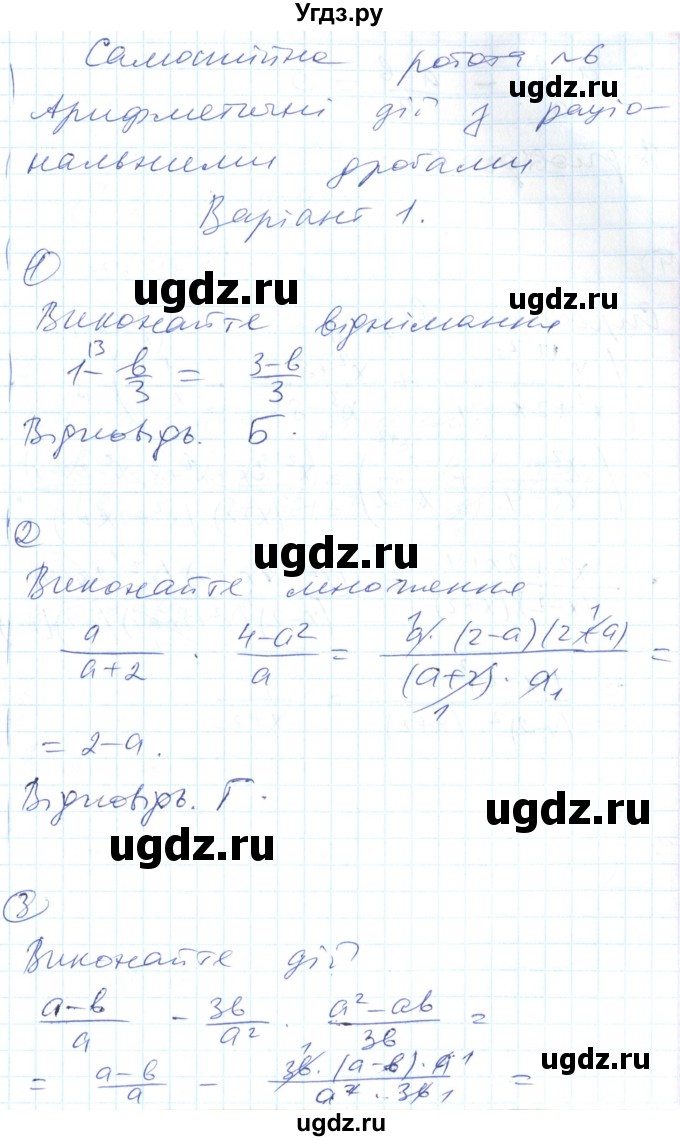 Угдз.ру
Самостійна робота №6
ugdz.ru
Арифметичні дії з раціо-
нальними дробами
ugdz.ru
Варіант 1.
1
ugdz.ru
ugdz.ru
Виконайте віднімання
1 - b/3 = (3-b)/3
Відповідь. Б.
ugdz.ru
2
ugdz.ru
Виконайте множення
a/(a+2) · (4-a²)/a = (a · (2-a)(2+a))/((a+2) · a) =
= 2-a.
Відповідь. Г.
ugdz.ru
ugdz.ru
3
Виконайте дії
(a-b)/a - 3b/a² · (a²-ab)/3b =
ugdz.ru
= (a-b)/a - (3b · (a-b) · a)/(a² · 3b) =
ugdz.ru